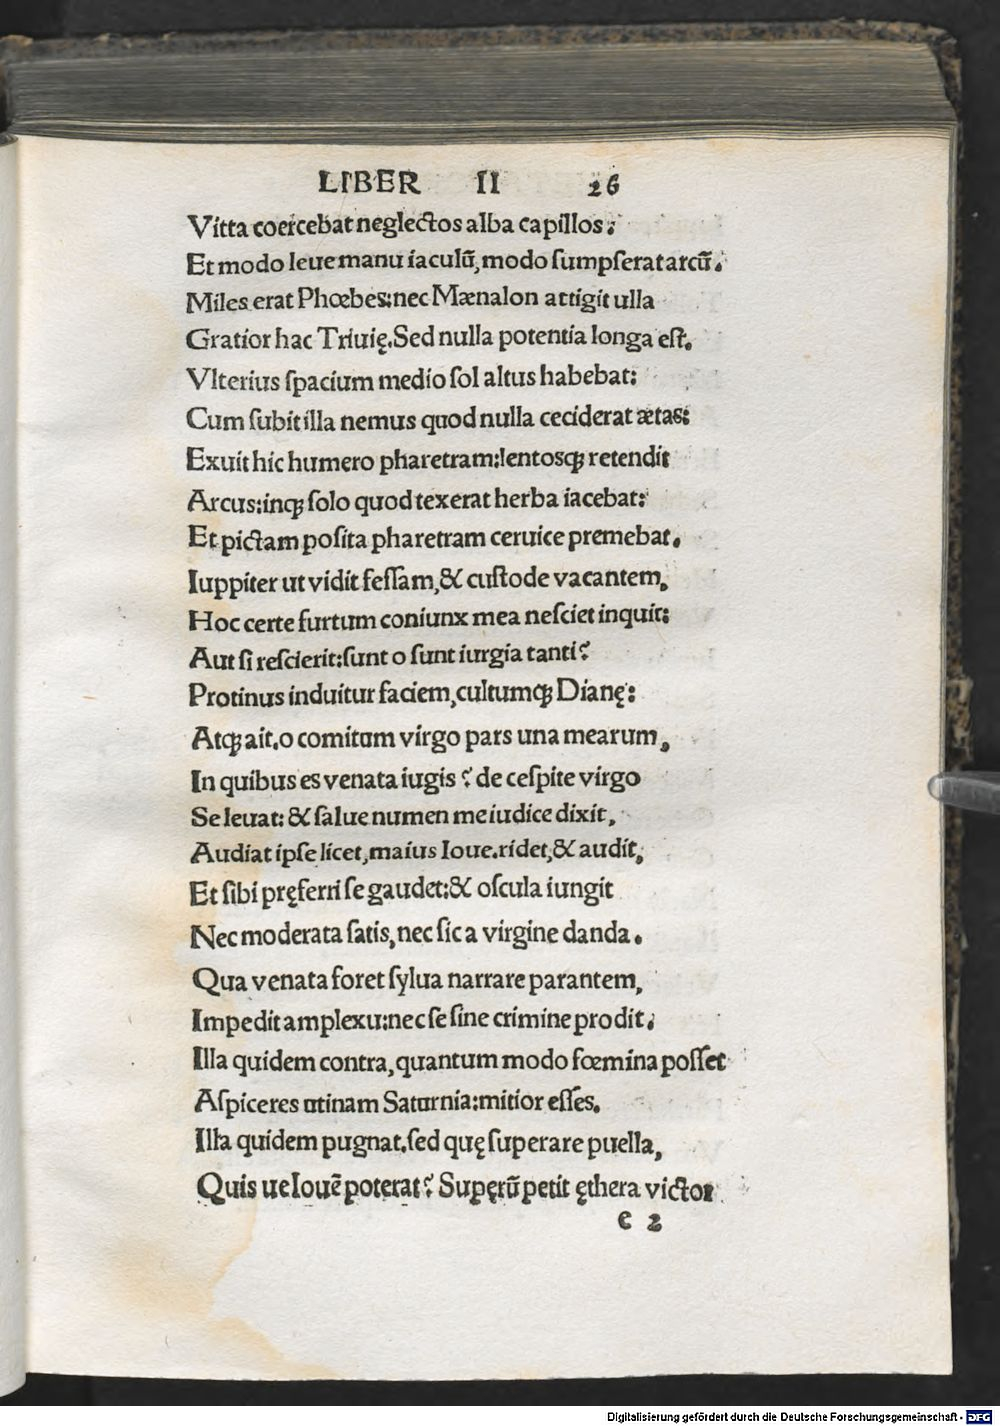 LIBER II 26
Vitta coercebat neglectos alba capillos:
Et modo leue manu iaculũ, modo sumpserat arcũ.
Miles erat Phœbes: nec Mænalon attigit ulla
Gratior hac Triuię. Sed nulla potentia longa est.
Vlterius spacium medio sol altus habebat:
Cum subit illa nemus quod nulla ceciderat ætas:
Exuit hic humero pharetram: lentosqꝫ retendit
Arcus: inqꝫ solo quod texerat herba iacebat:
Et pictam posita pharetram ceruice premebat.
Iuppiter ut vidit fessam, & custode vacantem,
Hoc certe furtum coniunx mea nesciet inquit:
Aut si rescierit: sunt o sunt iurgia tanti?
Protinus induitur faciem, cultumqꝫ Dianę:
Atqꝫ ait. o comitum virgo pars una mearum,
In quibus es venata iugis? de cespite virgo
Se leuat: & salue numen me iudice dixit,
Audiat ipse licet, maius Ioue. ridet, & audit,
Et sibi pręferri se gaudet: & oscula iungit
Nec moderata satis, nec sic a virgine danda.
Qua venata foret sylua narrare parantem,
Impedit amplexu: nec se sine crimine prodit.
Illa quidem contra, quantum modo fœmina posset
Aspiceres utinam Saturnia: mitior esses.
Illa quidem pugnat. sed quę superare puella,
Quis ue Iouẽ poterat? Supęrũ petit ęthera victor
e 2
Digitalisierung gefördert durch die Deutsche Forschungsgemeinschaft - DFG